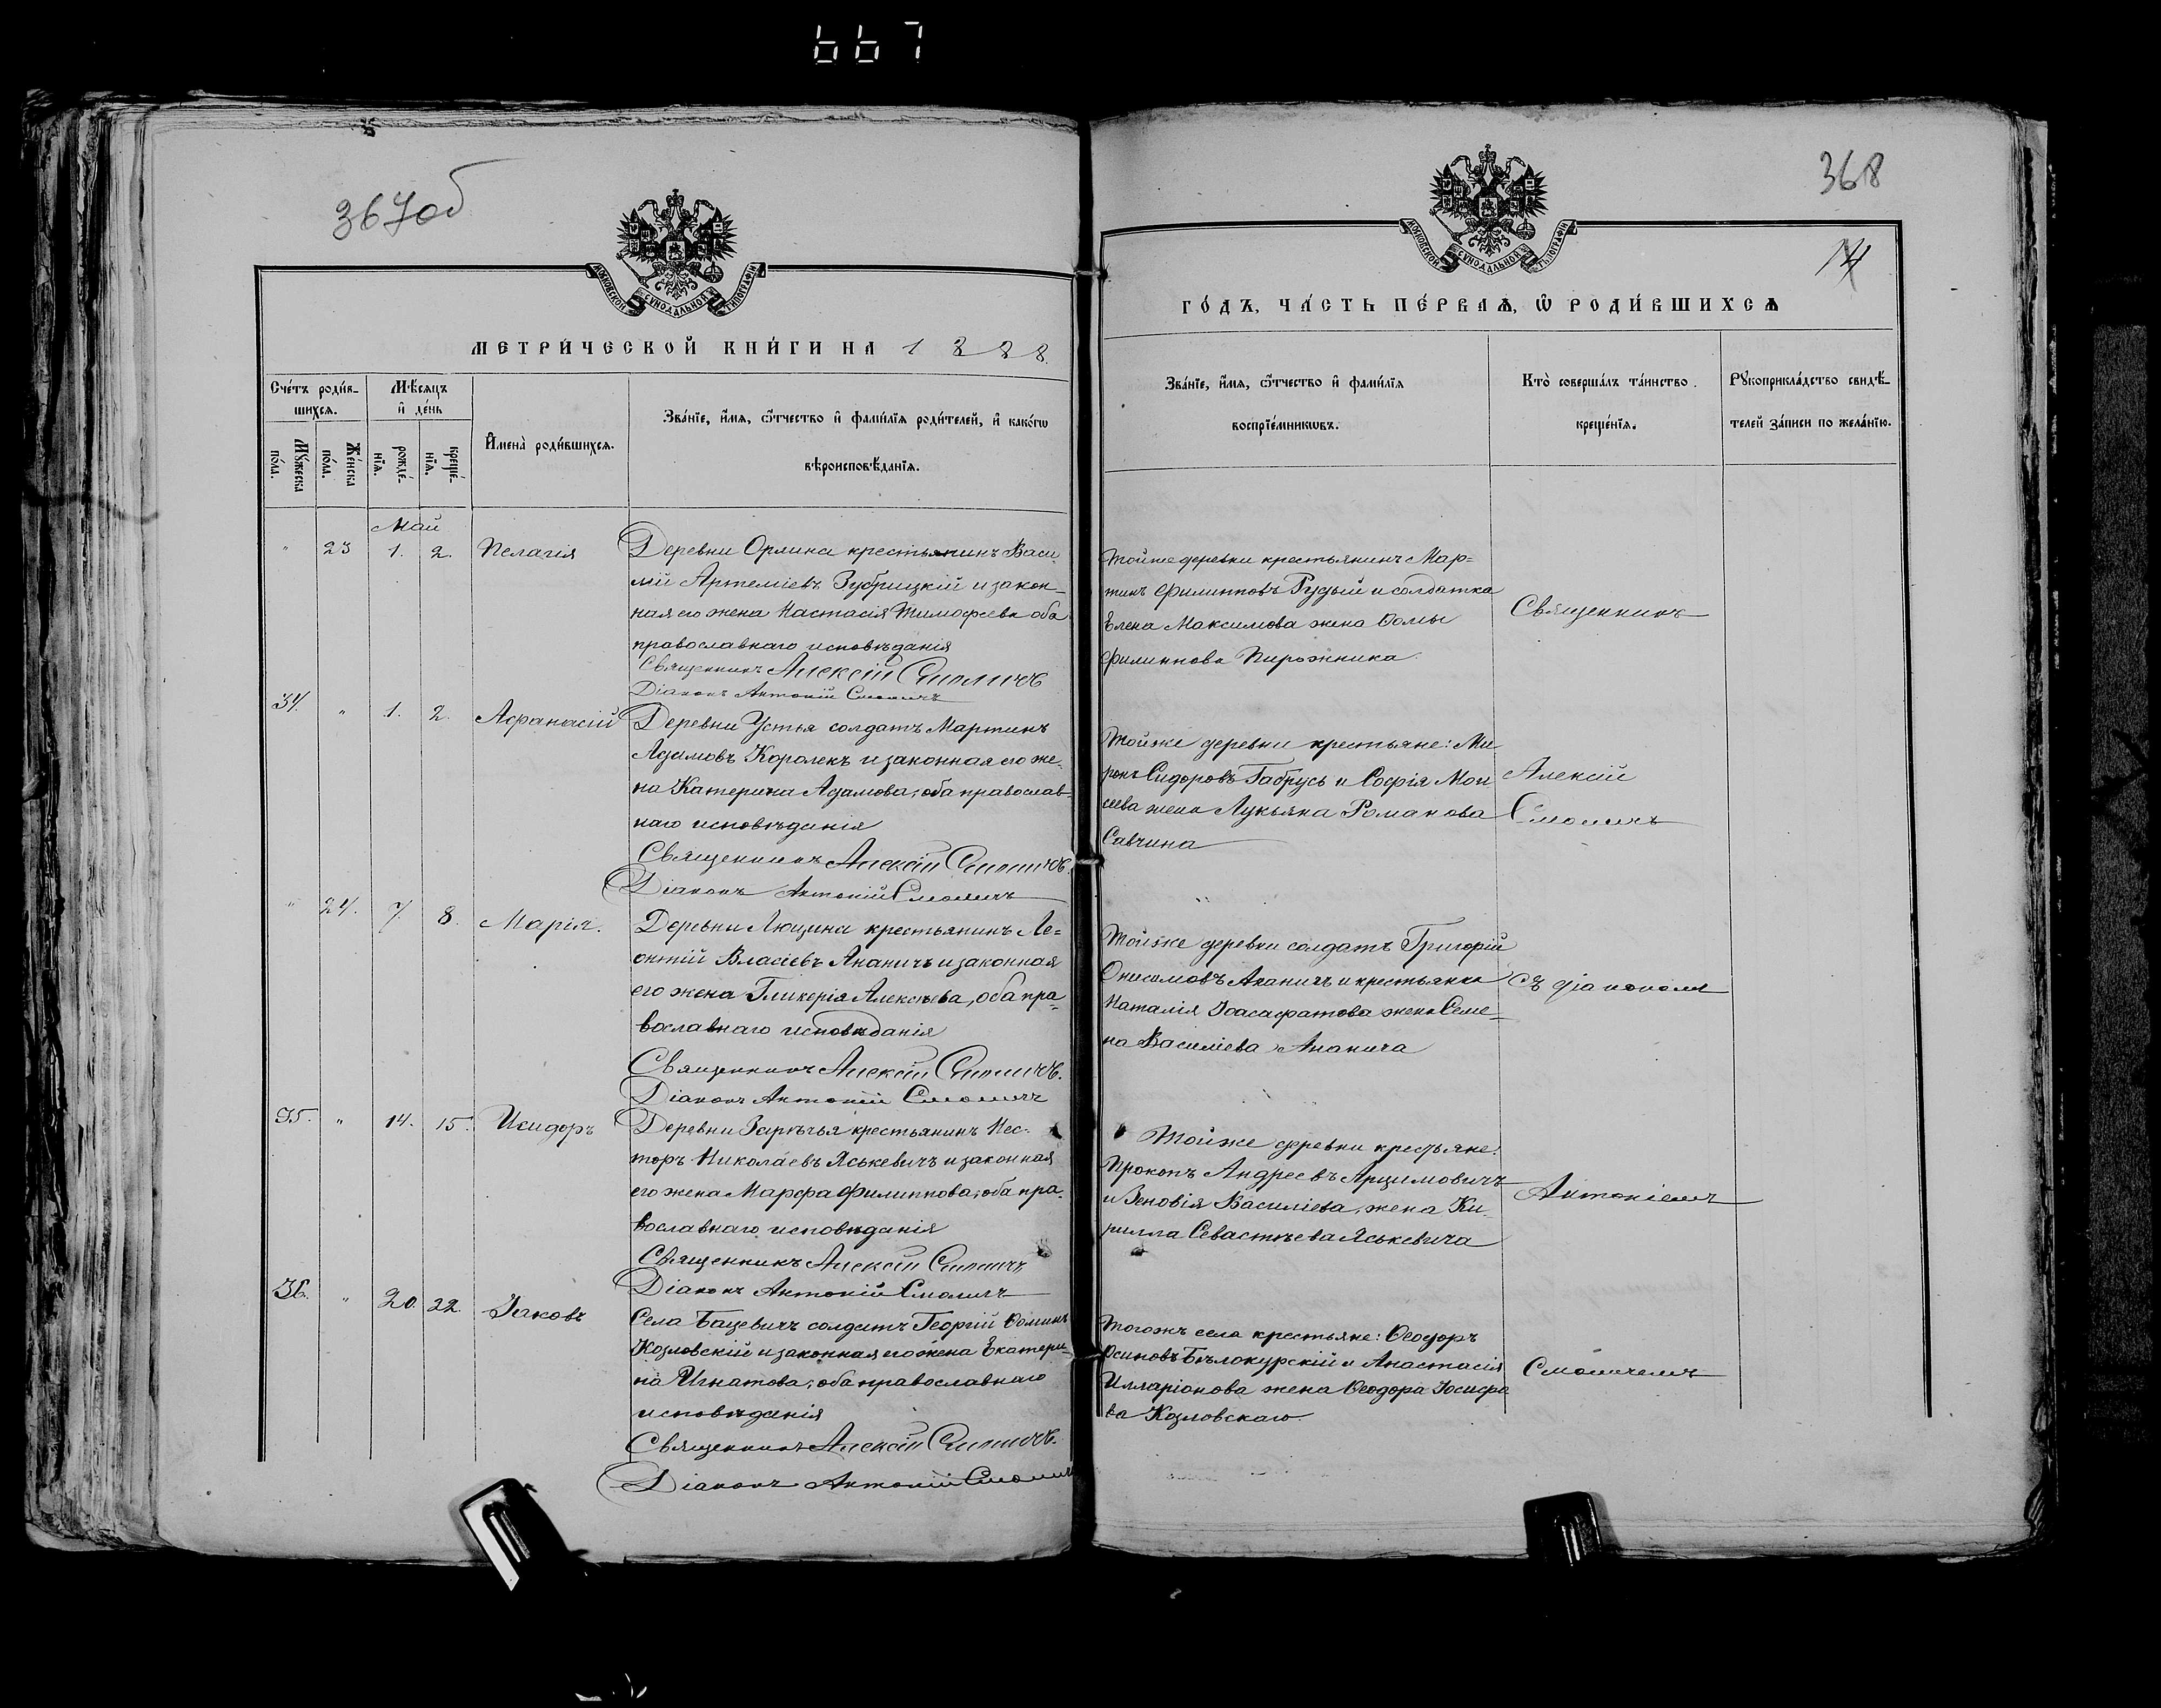 667
367об
МОСКОВСКОЙ СУНОДАЛЬНОЙ ТИПОГРАФІИ
МЕТРИ́ЧЕСКОЙ КНИ́ГИ НА 1888.
Сче́тъ роди́в-
шихсѧ.
Мѣ́сѧцъ
и҆ де́нь
Мꙋ́жеска по́ла.
Же́нска по́ла.
рожде́-нїѧ.
креще́-нїѧ.
И҆мена̀ роди́вшихсѧ.
Зва́нїе, и҆́мѧ, ѻ҆́тчество и҆ фами́лїѧ роди́телей, и҆ како́гѡ
вѣроисповѣ́данїѧ.
Май
" 23 1. 2. Пелагія
Деревни Орлина крестьянинъ Васи
лій Артеміевъ Зубрицкій и закон-
ная его жена Настасія Тимофеева оба
православнаго исповѣданія
Священникъ Алексій Смоличъ
Діаконъ Антоній Смоличъ
34. " 1. 2. Афанасій
Деревни Устья солдатъ Мартинъ
Адамовъ Королекъ и законная его же-
на Катерина Адамова; оба православ-
наго исповѣданія
Священникъ Алексій Смоличъ.
Діаконъ Антоній Смоличъ
" 24. 7. 8. Марія.
Деревни Лющина крестьянинъ Ле=
онтій Власіевъ Ананичъ и законная
его жена Гликерія Алексѣева, оба пра-
вославнаго исповѣданія
Священникъ Алексій Смоличъ.
Діаконъ Антоній Смоличъ
35. " 14. 15. Исидоръ
Деревни Зарѣчья крестьянинъ Нес-
торъ Николаевъ Яськевичъ и законная
его жена Марфа Филиппова; оба пра-
вославнаго исповѣданія
Священникъ Алексій Смоличъ
Діаконъ Антоній Смоличъ
36. " 20. 22. Іаковъ
Села Бацевичъ солдатъ Георгій Ѳоминъ
Козловскій и законная его жена Екатери-
на Игнатова; оба православнаго
исповѣданія
Священникъ Алексій Смоличъ.
Діаконъ Антоній Смоличъ
368
14
МОСКОВСКОЙ СУНОДАЛЬНОЙ ТИПОГРАФІИ
ГО́ДЪ, ЧА́СТЬ ПЕ́РВАѦ, Ѡ҆ РОДИ́ВШИХСѦ
Зва́нїе, и҆́мѧ, ѻ҆́тчество и҆ фами́лїѧ
воспрїе́мникѡвъ.
Кто̀ соверша́лъ та́инство
креще́нїѧ.
Рꙋкоприкла́дство свидѣ́-
телей за́писи по жела́нїю.
Тойже деревни крестьянинъ Мар=
тинъ Филипповъ Рудый и солдатка
Елена Максимова жена Ѳомы
Филиппова Пирожника
Священникъ
Тойже деревни крестьяне: Ми
ронъ Сидоровъ Габрусь и Софія Мои
сеева жена Лукьяна Романова
Савчина
Алексій
Смоличъ
Тойже деревни солдатъ Григорій
Онисимовъ Ананичъ и крестьянка
Наталія Іоасафатова жена Семе-
на Василіева Ананича
съ діакономъ
Тойже деревни крестьяне:
Прокопъ Андреевъ Арцимовичъ
и Зеновія Василіева, жена Ки-
рилла Севастѣева Яськевича
Антоніемъ
Тогожъ села крестьяне: Ѳеодоръ
Осиповъ Бѣлокурскій и Анастасія
Илларіонова жена Ѳеодора Іосифо
ва Козловскаго
Смоличемъ